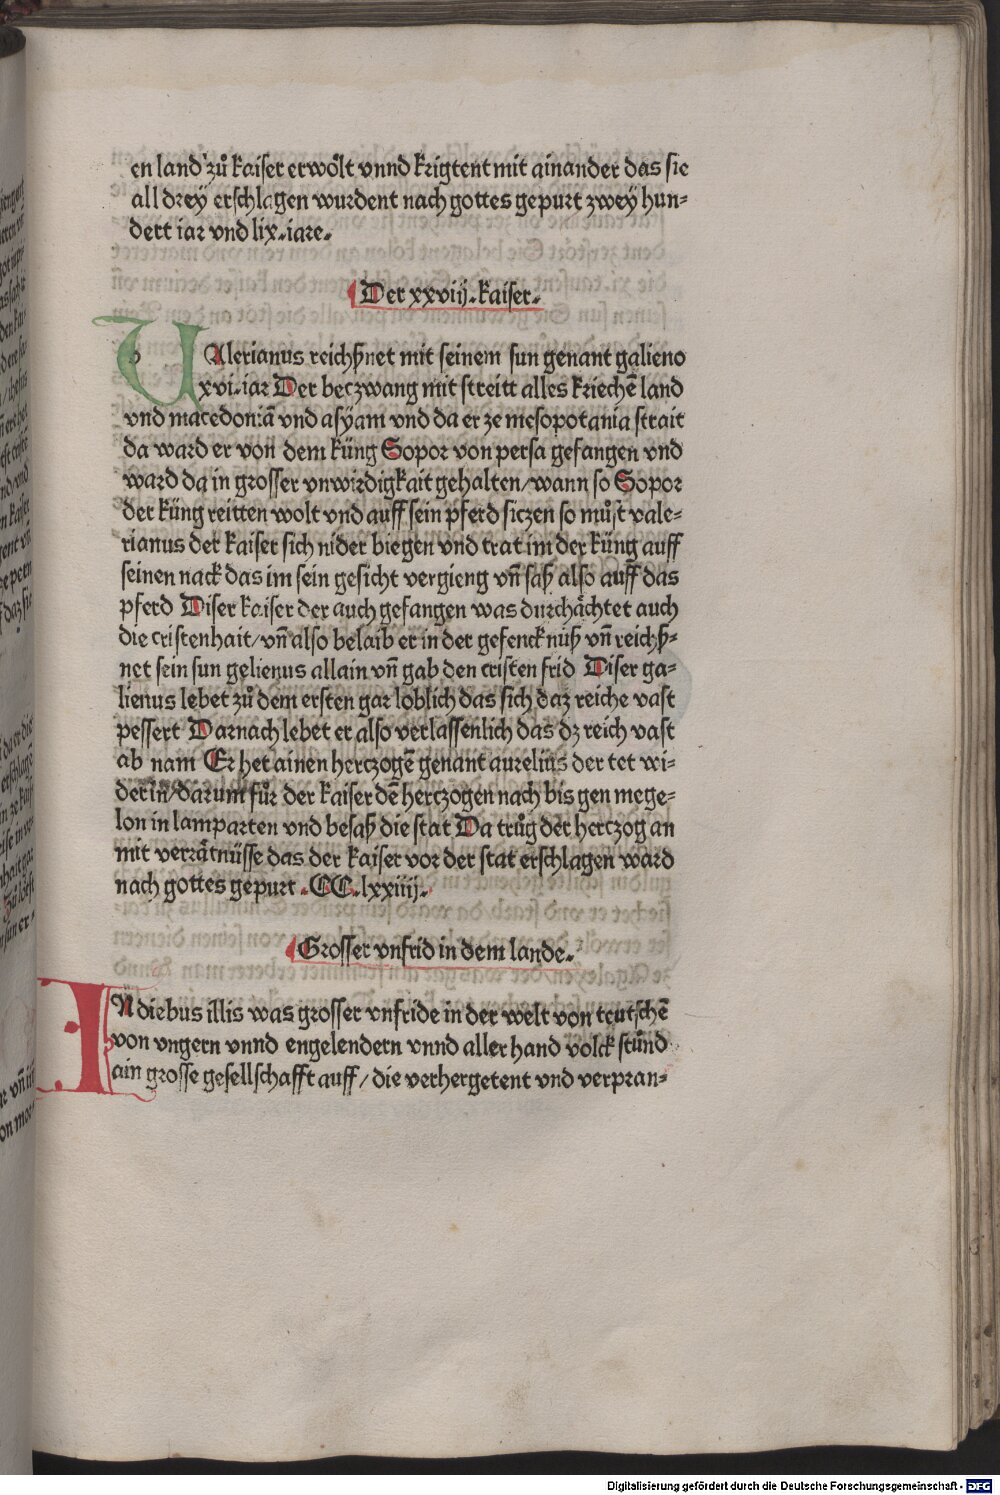 en land zů kaiser erwölt vnnd krigtent mit ainander das sie
all drey erschlagen wurdent nach gottes gepurt zwey hun-
dert iar vnd lix. iare.
Der xxviij. kaiser.
VAlerianus reichßnet mit seinem sun genant galieno
xvi. iar Der beczwang mit streitt alles kriechē land
vnd macedoniā vnd asÿam vnd da er ze mesopotania strait
da ward er von dem küng Sopor von persa gefangen vnd
ward da in grosser vnwirdigkait gehalten/wann so Sopor
der küng reitten wolt vnd auff sein pferd siczen so můst vale-
rianus der kaiser sich nider biegen vnd trat im der küng auff
seinen nack das im sein gesicht vergieng vñ saß also auff das
pferd Diser kaiser der auch gefangen was durchächtet auch
die cristenhait/vñ also belaib er in der gefencknüß vñ reichß-
net sein sun gelienus allain vñ gab den cristen frid Diser ga-
lienus lebet zů dem ersten gar loblich das sich daz reiche vast
pessert Darnach lebet er also verlassenlich das dz reich vast
ab nam Er het ainen herczogē genant aurelius der tet wi-
der in/darum fůr der kaiser dē herczogen nach bis gen mege-
lon in lamparten vnd besaß die stat Da trůg der herczog an
mit verrätnüsse das der kaiser vor der stat erschlagen ward
nach gottes gepurt .CC.lxxiiij.
Grosser vnfrid in dem lande.
IN diebus illis was grosser vnfride in der welt von teutschē
von vngern vnnd engelendern vnnd aller hand volck stůnd
ain grosse gesellschafft auff/die verhergetent vnd verpran-
Digitalisierung gefördert durch die Deutsche Forschungsgemeinschaft - DFG